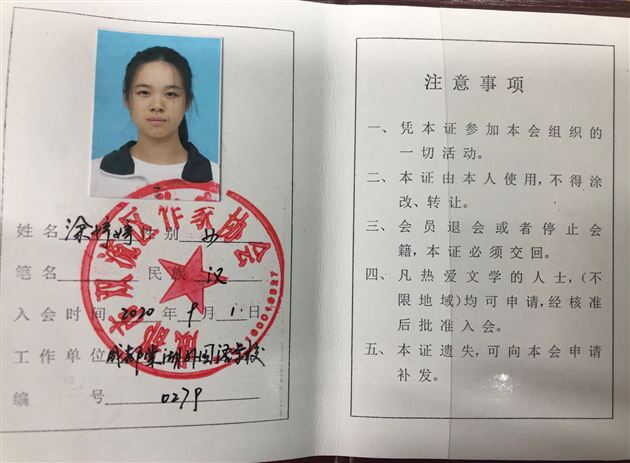 姓名 涂婷婷 性别 女
笔名 民族 汉
入会时间 2020 年 9 月 1 日
工作单位 成都棠湖外国语学校
编号 0279
注意事项
一、凭本证参加本会组织的
一切活动。
二、本证由本人使用,不得涂
改、转让。
三、会员退会或者停止会
籍,本证必须交回。
四、凡热爱文学的人士,(不
限地域)均可申请,经核准
后批准入会。
五、本证遗失,可向本会申请
补发。